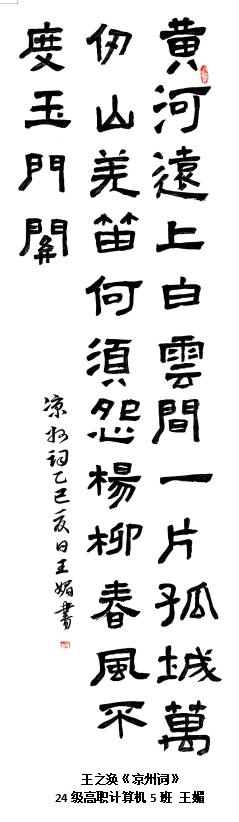 黄河遠上白雲間一片孤城萬
仞山羌笛何須怨楊柳春風不
度玉門關
凉州词乙巳夏日王媚書
王之涣《凉州词》
24级高职计算机5班 王媚